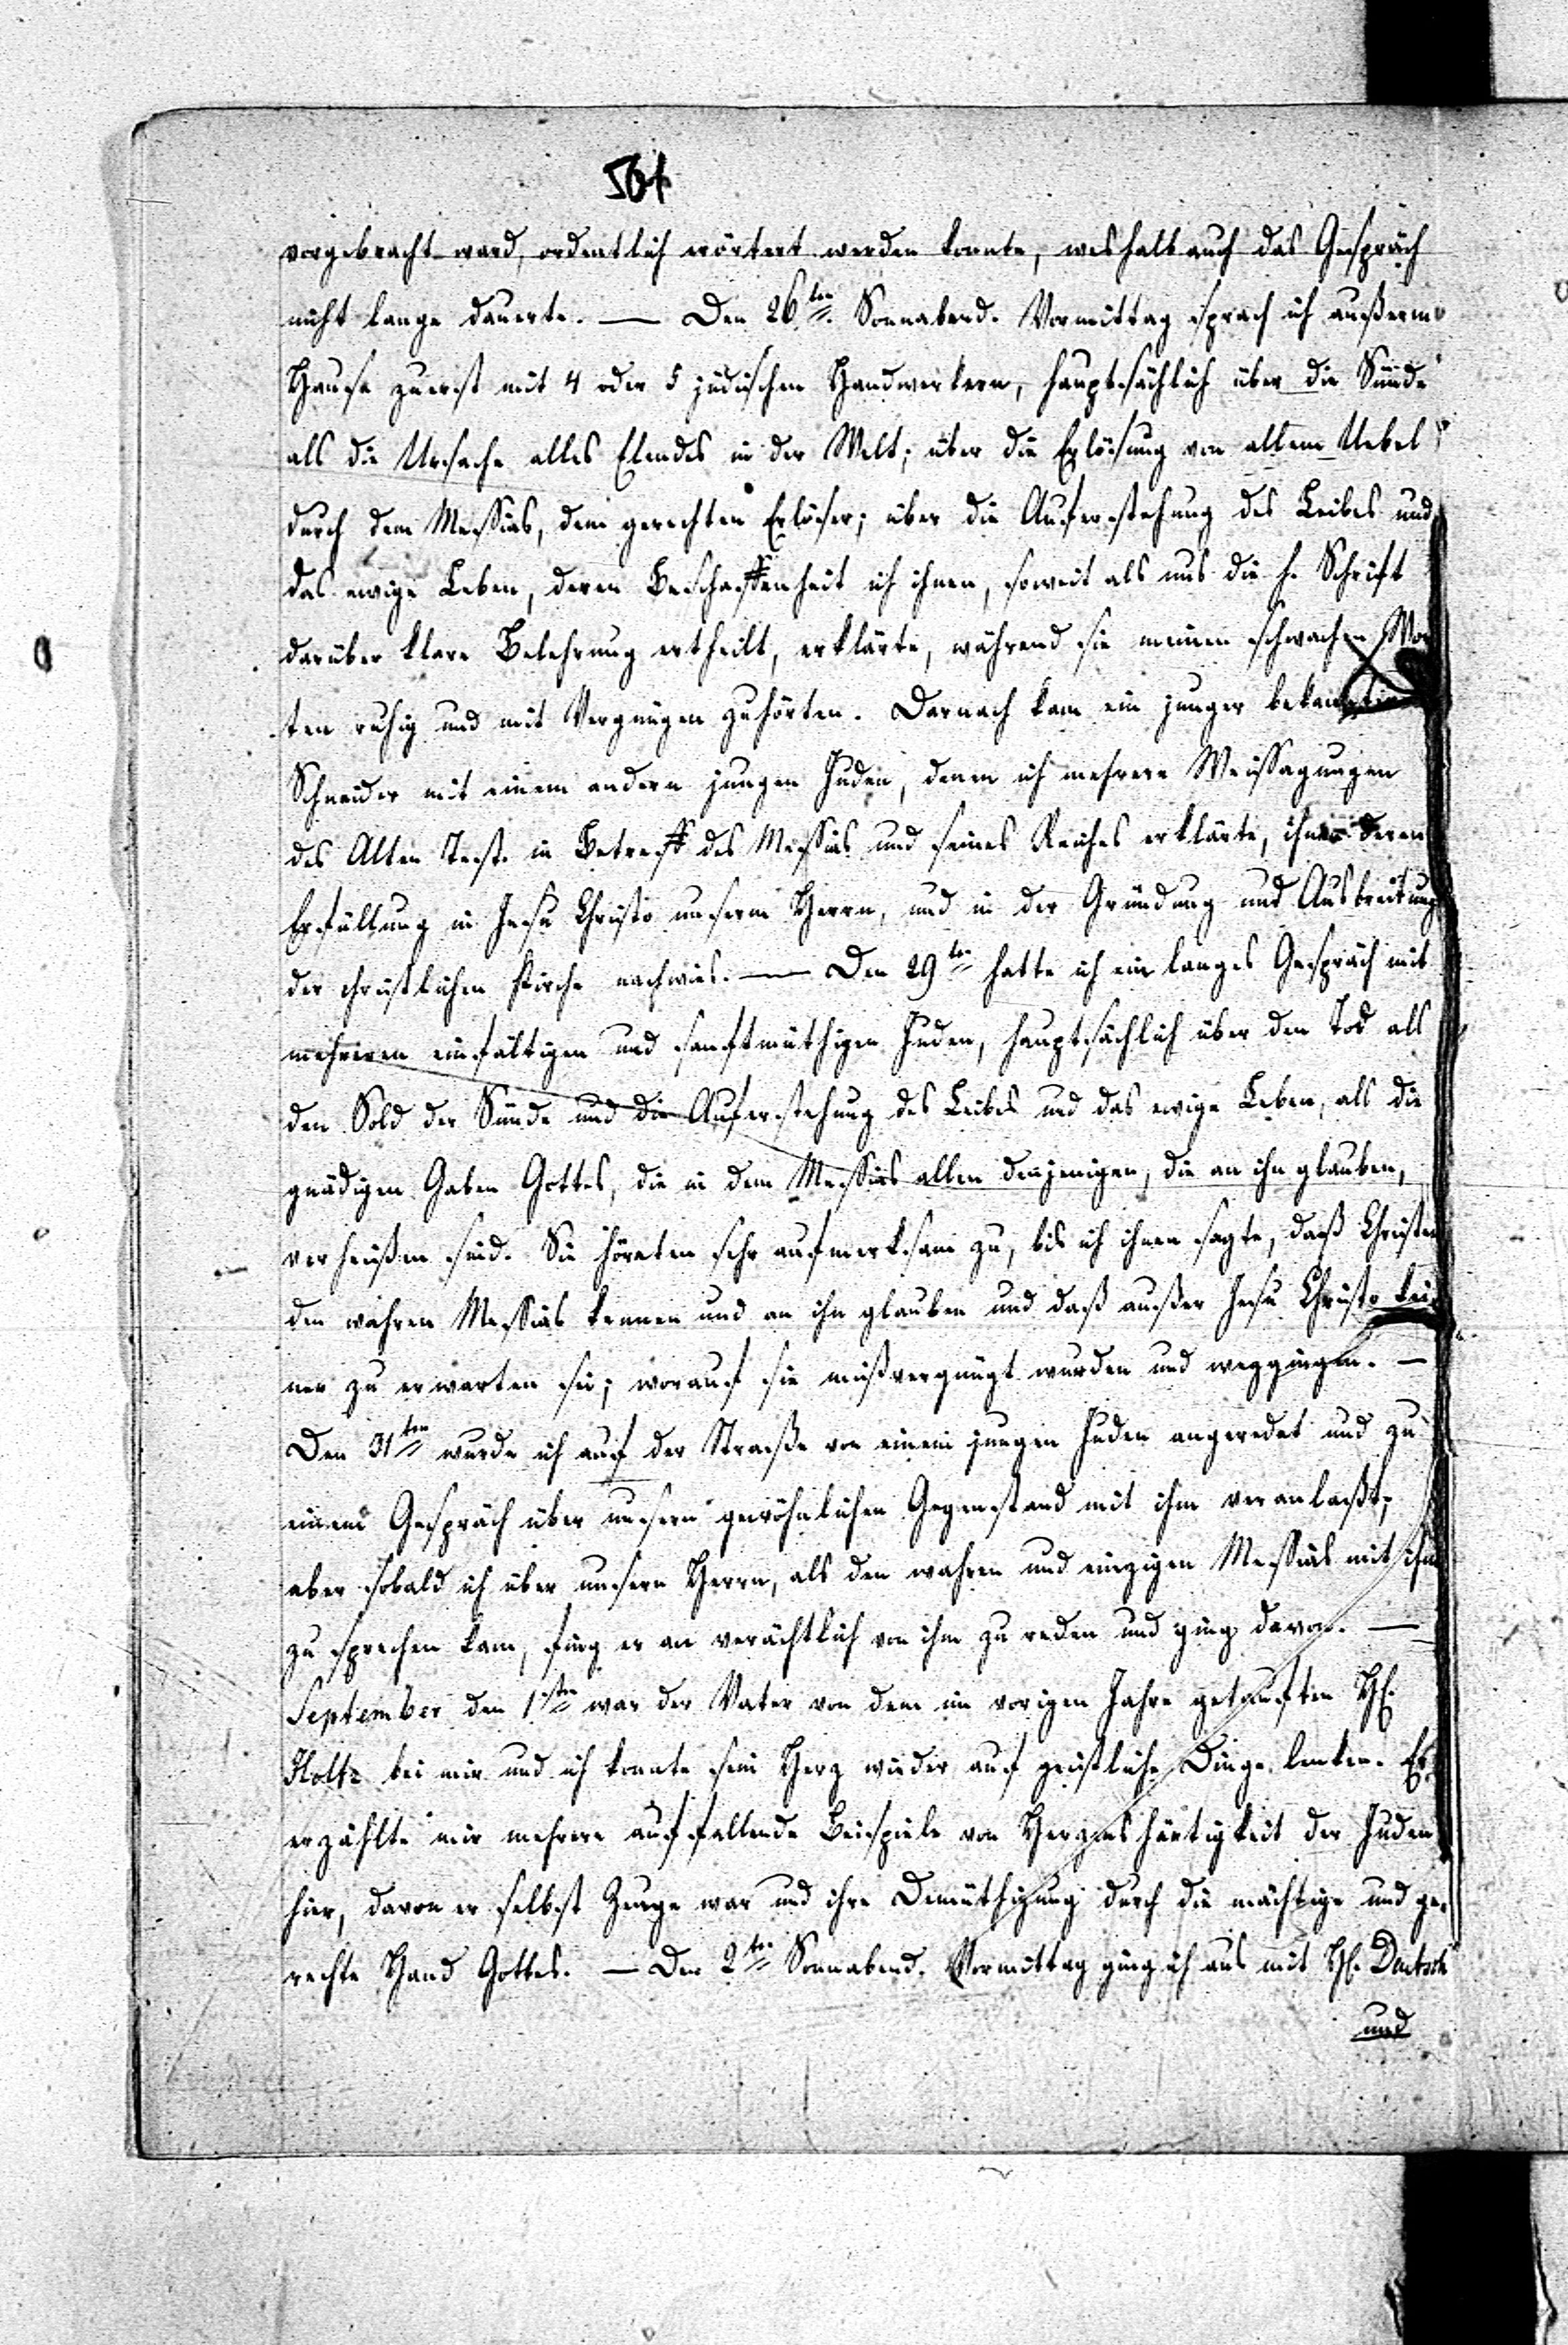 vorgebracht ward, ordentlich erörtert werden konnte, weshalb auch das Gespräch
nicht lange dauerte. — Den 26ten Sonnabend. Vormittag sprach ich außerm
Hause zuerst mit 4 oder 5 jüdischen Handwerkern, hauptsächlich über die Sünde
als die Ursache alles Elendes in der Welt; über die Erlösung von allem Uebel
durch den Messias, dem gerechten Erlöser; über die Auferstehung des Leibes und
das ewige Leben, deren Beschaffenheit ich ihnen, soweit als uns die h. Schrift
darüber klare Belehrung ertheilt, erklärte, während sie meinen schwachen Wor
ten ruhig und mit Vergnügen zuhörten. Darnach kam ein junger
Schneider mit einem andern jungen Juden, denen ich mehrere Weissagungen
des Alten Test. in Betreff des Messias und seines Reiches erklärte, ihnen deren
Erfüllung in Jesu Christo unserm Herrn, und in der Gründung und Ausbreitung
der christlichen Kirche nachwies. — Den 29ten hatte ich ein langes Gespräch mit
mehreren einfältigen und sanftmüthigen Juden, hauptsächlich über den Tod als
den Sold der Sünde und die Auferstehung des Leibes und das ewige Leben, als die
gnädigen Gaben Gottes, die in dem Messias allen denjenigen, die an ihn glauben,
verheißen sind. Sie höreten sehr aufmerksam zu, bis ich ihnen sagte, daß Christen
den wahren Messias kennen und an ihn glauben und daß außer Jesu Christo kei
ner zu erwarten sei; worauf sie mißvergnügt wurden und weggingen. —
Den 31ten wurde ich auf der Straße von einem jungen Juden angeredet und zu
einem Gespräch über unsern gewöhnlichen Gegenstand mit ihm veranlaßt;
aber sobald ich über unsern Herrn, als den wahren und einzigen Messias mit ihm
zu sprechen kam, fing er an verächtlich von ihm zu reden und ging davon. —
September den 1sten war der Vater von dem im vorigen Jahre getauften H.
Holtz bei mir und ich konnte sein Herz wieder auf geistliche Dinge lenken. Er
erzählte mir mehrere auffallende Beispiele von Herzenshärtigkeit der Juden
hier, davon er selbst Zeuge war und ihre Demüthigung durch die mächtige und ge-
rechte Hand Gottes. — Den 2ten Sonnabend. Vormittag ging ich aus mit H. Deutsch
und